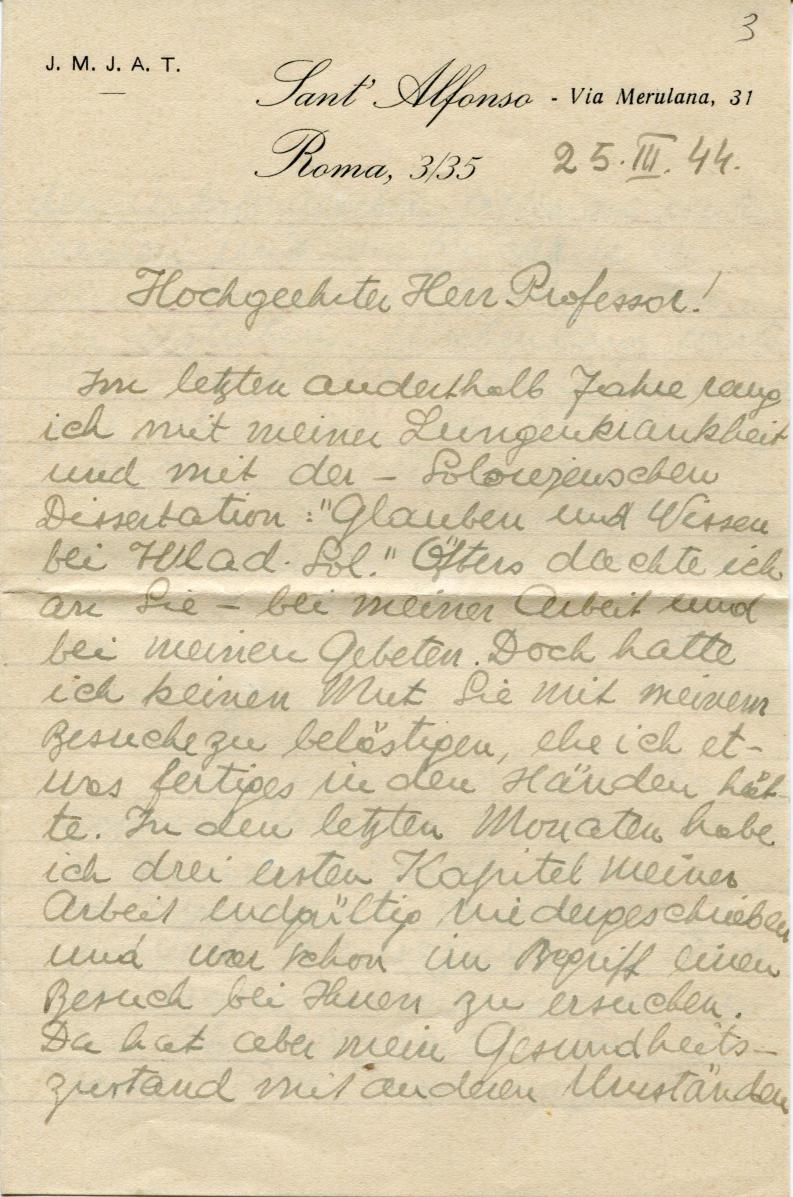 3
J. M. J. A. T.
Sant' Alfonso - Via Merulana, 31
Roma, 3/35 25. III. 44.
Hochgeehrter Herr Professor!
Im letzten anderthalb Jahre rang
ich mit meiner Lungenkrankheit
und mit der – Solowjewschen
Dissertation: "Glauben und Wissen
bei Wlad. Sol." Öfters dachte ich
an Sie – bei meiner Arbeit und
bei meinen Gebeten. Doch hatte
ich keinen Mut Sie mit meinem
Besuche zu belästigen, ehe ich et-
was fertiges in den Händen hät-
te. In den letzten Monaten habe
ich drei ersten Kapitel meiner
Arbeit endgültig niedergeschrieben
und war schon im Begriff einen
Besuch bei Ihnen zu ersuchen.
Da hat aber mein Gesundheits-
zustand mit anderen Umständen